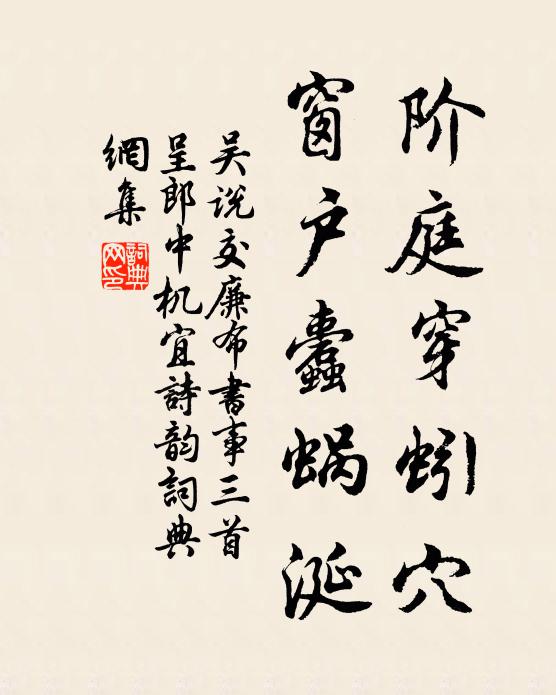 阶庭穿蚓穴
窗户蠹蜗涎
吴说交廉布書事三首
呈郎中机宜詩韵詞典
網集
詞典
网印